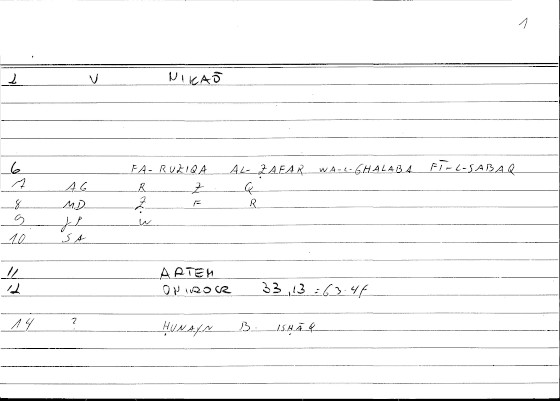 1
2 V NIKAŌ
6 FA-RUZIQA AL-ẒAFAR WA-L-GHALABA FĪ-L-SABAQ
7 AG R Z Q
8 MD Ẓ F R
9 JP W
10 SA
11 ARTEM
12 ONIROCR 33,13 = 63.4f
14 ? ḤUNAYN B. ISḤĀQ